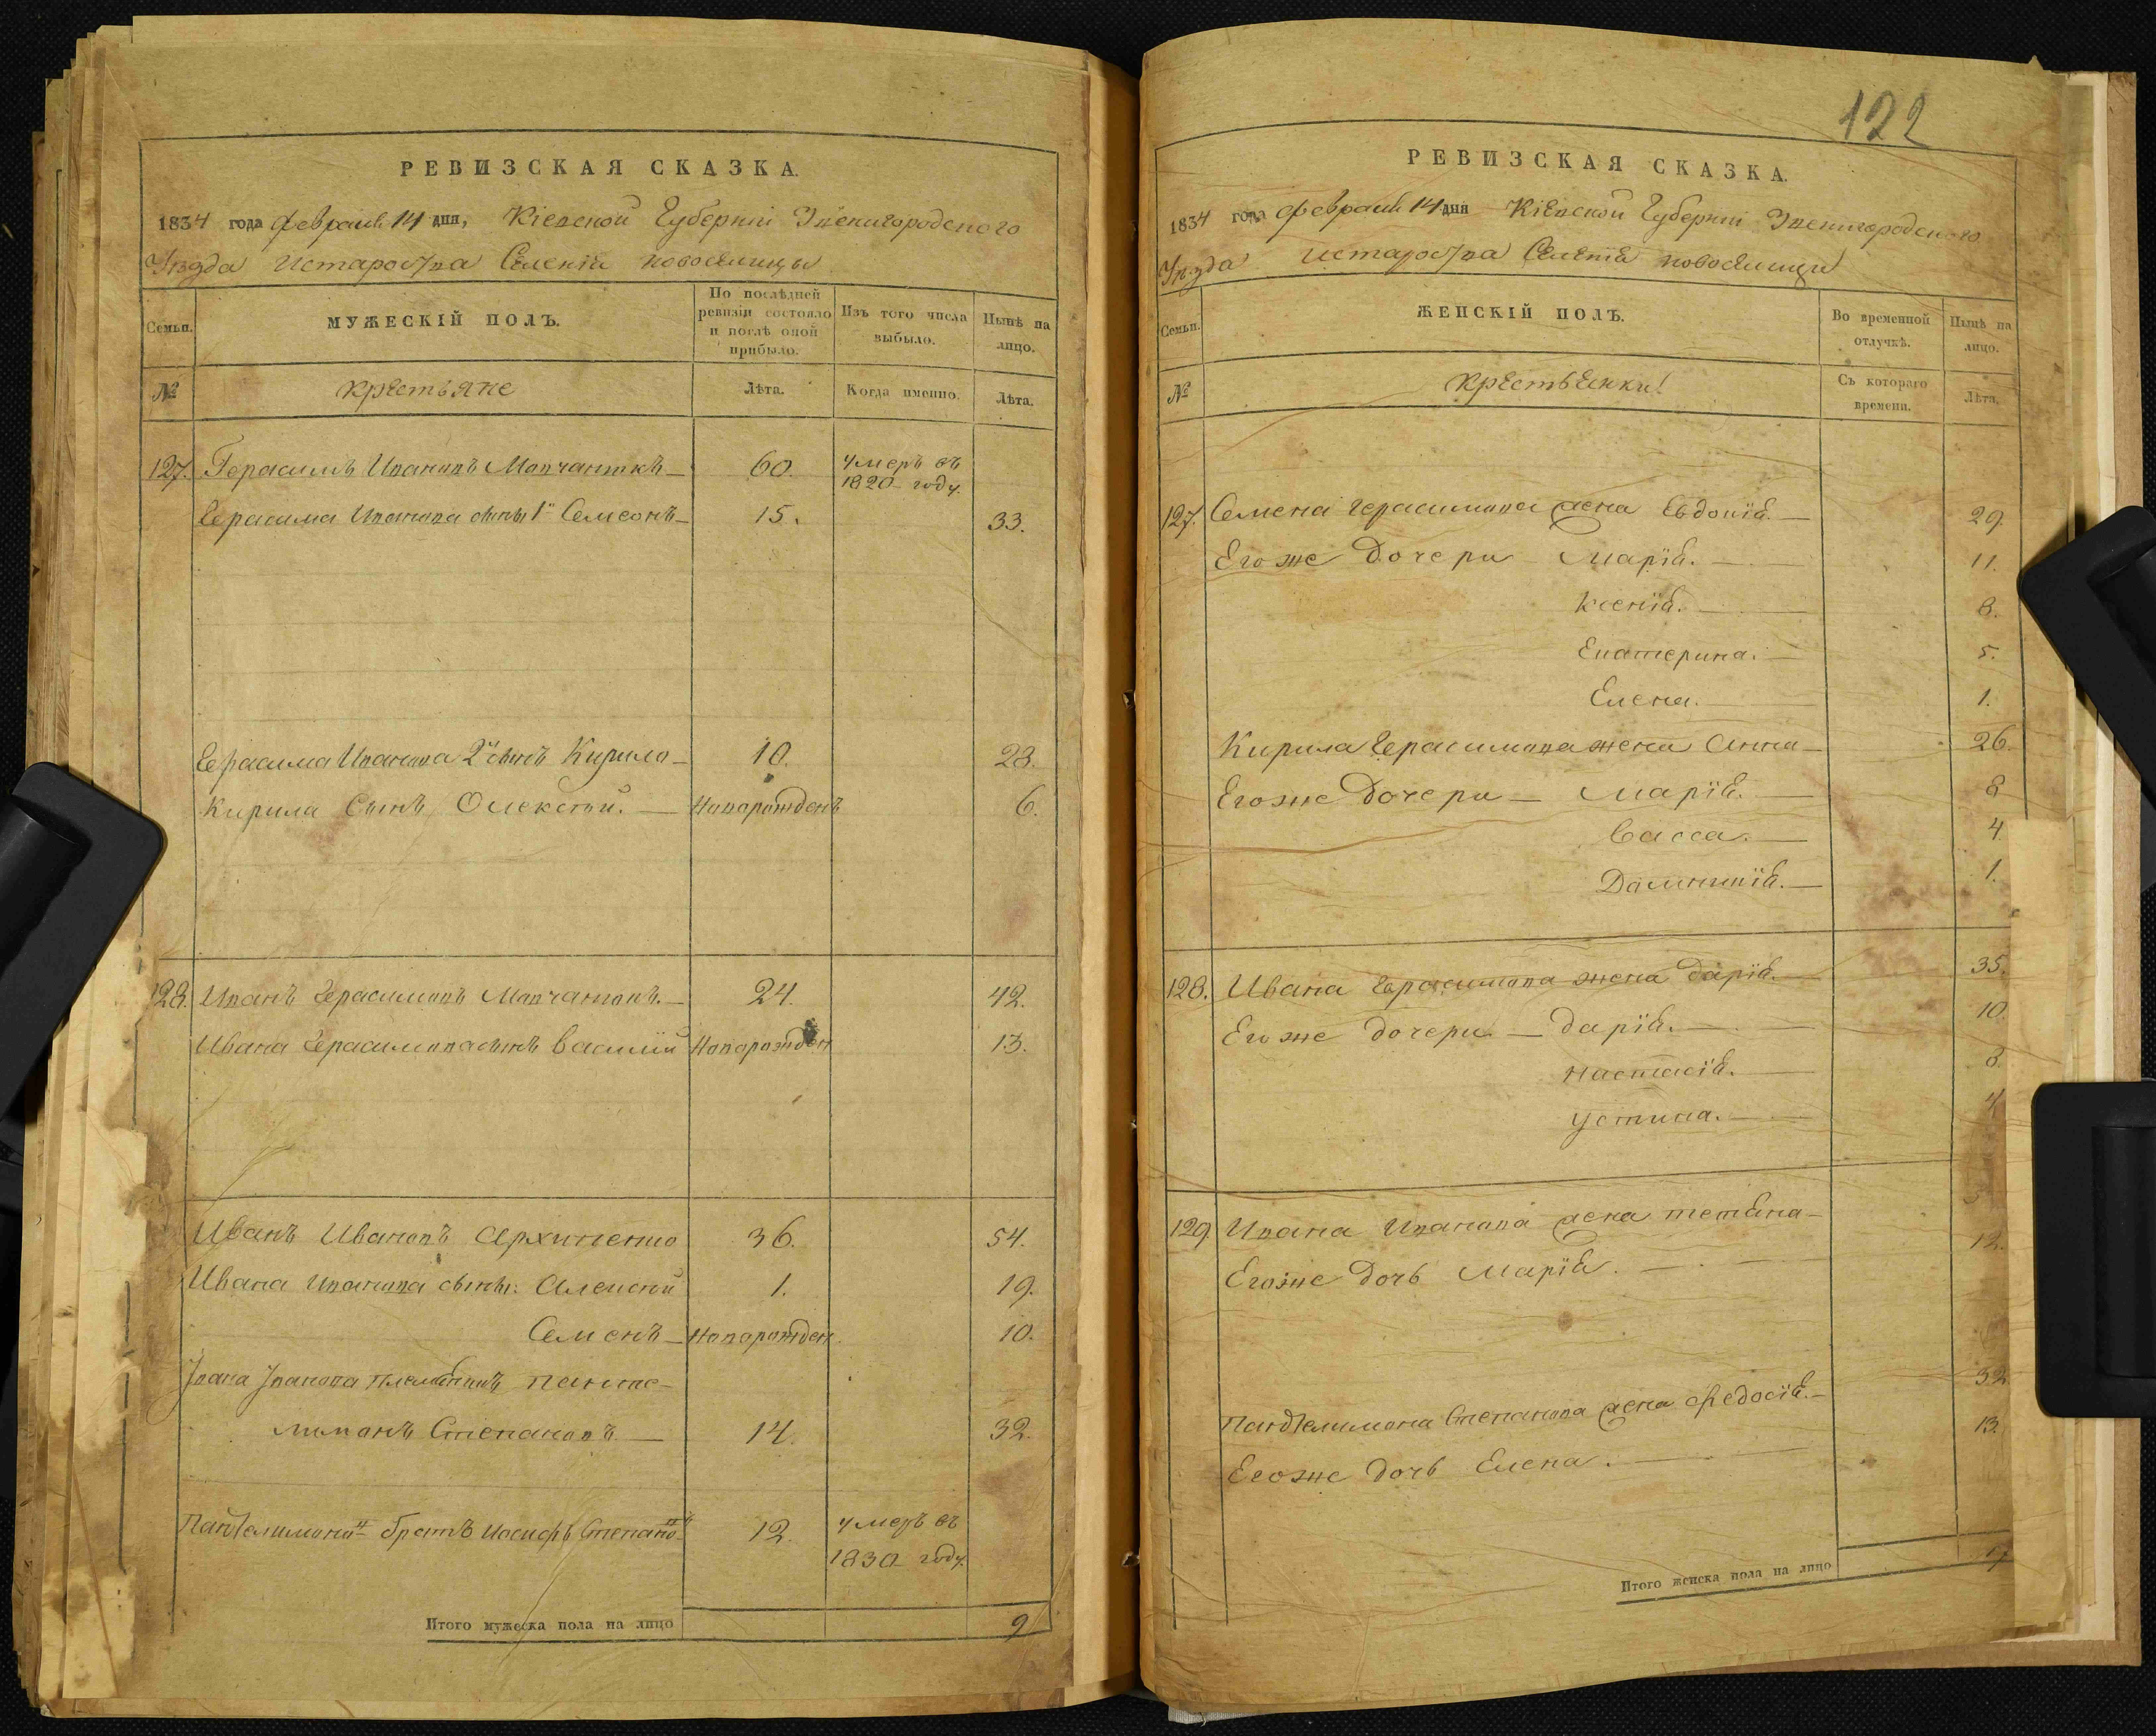 РЕВИЗСКАЯ СКАЗКА.
1834 года февраля 14 дня, Кіевской Губерніи Звенигородского
Уѣзда Истароства Селенія новоселицы
Семьи.
МУЖЕСКІЙ ПОЛЪ.
По послѣдней ревизіи состояло и послѣ оной прибыло.
Изъ того числа выбыло.
Нынѣ на лицо.
№
крестьяне
Лѣта.
Когда именно.
Лѣта.
127. Герасимъ Ивановъ 60. умеръ въ
1820 году.
Герасима Иванова сыны 1й Семеонъ 15. 33.
Герасима Иванова 2й сынъ Кирило 10. 28.
Кирила Сынъ Олексѣй. Новорожденъ 6.
128. Иванъ Герасимовъ 24. 42.
Ивана Герасимова сынъ Василій Новорожден 13.
Иванъ Ивановъ Архипенко 36. 54.
Ивана Иванова сыны: Алексѣй 1. 19.
Семенъ Новорожден. 10.
Ивана Иванова племѣникъ Панте-
лимонъ Степановъ 14. 32.
Пантелимона братъ Иосифъ 12. умеръ въ
1830 году.
Итого мужеска пола на лицо 9
122
РЕВИЗСКАЯ СКАЗКА.
1834 года февраля 14 дня Кіевской Губерніи Звенигородского
Уѣзда Истароства Селенія новоселицы
Семьи.
ЖЕНСКІЙ ПОЛЪ.
Во временной отлучкѣ.
Нынѣ на лицо.
№
крестьенки!
Съ котораго времени.
Лѣта.
127. Семена Герасимова жена Евдокія. 29.
Егоже дочери Марія. 11.
Ксенія. 8.
Екатерина. 5.
Елена. 1.
Кирила Герасимова жена Анна 26.
Егоже дочери Марія. 8
Васса. 4.
Домникія. 1.
128. Ивана Герасимова жена Дарія. 35.
Егоже дочери Дарія. 10.
настасія. 8.
устина. 4
129 Ивана Иванова жена
Егоже дочь Марія. 12.
Пантелимона Степанова жена Федосія. 32
Егоже дочь Елена. 13.
Итого женска пола на лицо